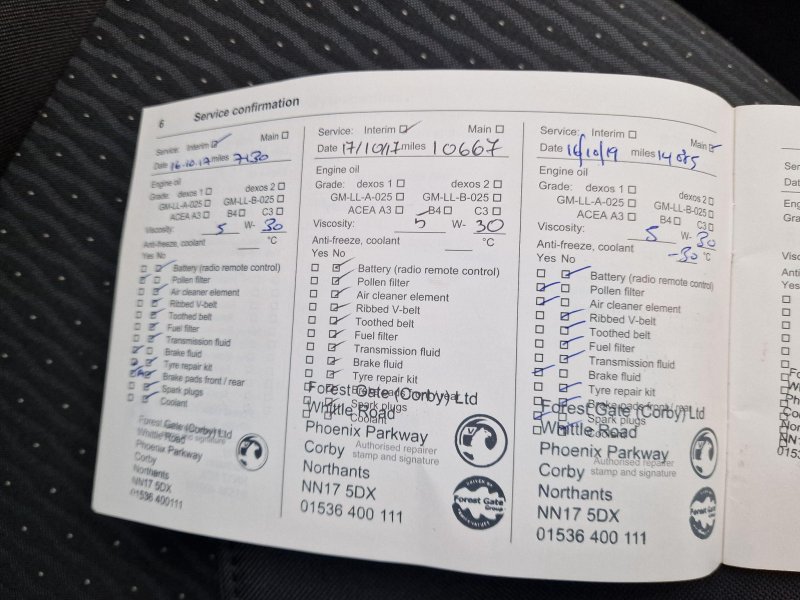 6 Service confirmation
Service: Interim Main
Date 16.10.17 miles 7130
Engine oil
Grade: dexos 1 dexos 2
GM-LL-A-025 GM-LL-B-025
ACEA A3 B4 C3
Viscosity: 5 W- 30
Anti-freeze, coolant °C
Yes No
Battery (radio remote control)
Pollen filter
Air cleaner element
Ribbed V-belt
Toothed belt
Fuel filter
Transmission fluid
Brake fluid
Tyre repair kit
Brake pads front / rear
Spark plugs
Coolant
Forest Gate (Corby) Ltd
Whittle Road
Phoenix Parkway
Corby
Northants
NN17 5DX
01536 400111
Service: Interim Main
Date 17/10/17 miles 10667
Engine oil
Grade: dexos 1 dexos 2
GM-LL-A-025 GM-LL-B-025
ACEA A3 B4 C3
Viscosity: 5 W- 30
Anti-freeze, coolant °C
Yes No
Battery (radio remote control)
Pollen filter
Air cleaner element
Ribbed V-belt
Toothed belt
Fuel filter
Transmission fluid
Brake fluid
Tyre repair kit
Spark plugs
Coolant
Forest Gate (Corby) Ltd
Whittle Road
Phoenix Parkway
Corby Authorised repairer
stamp and signature
Northants
NN17 5DX
01536 400 111
Forest Gate
Group
Service: Interim Main
Date 16/10/19 miles 14085
Engine oil
Grade: dexos 1 dexos 2
GM-LL-A-025 GM-LL-B-025
ACEA A3 B4 C3
Viscosity: 5 W- 30
Anti-freeze, coolant -30 °C
Yes No
Battery (radio remote control)
Pollen filter
Air cleaner element
Ribbed V-belt
Toothed belt
Fuel filter
Transmission fluid
Brake fluid
Tyre repair kit
Brake pads front / rear
Spark plugs
Forest Gate (Corby) Ltd
Whittle Road
Phoenix Parkway
Corby Authorised repairer
stamp and signature
Northants
NN17 5DX
01536 400 111
Forest Gate
Group